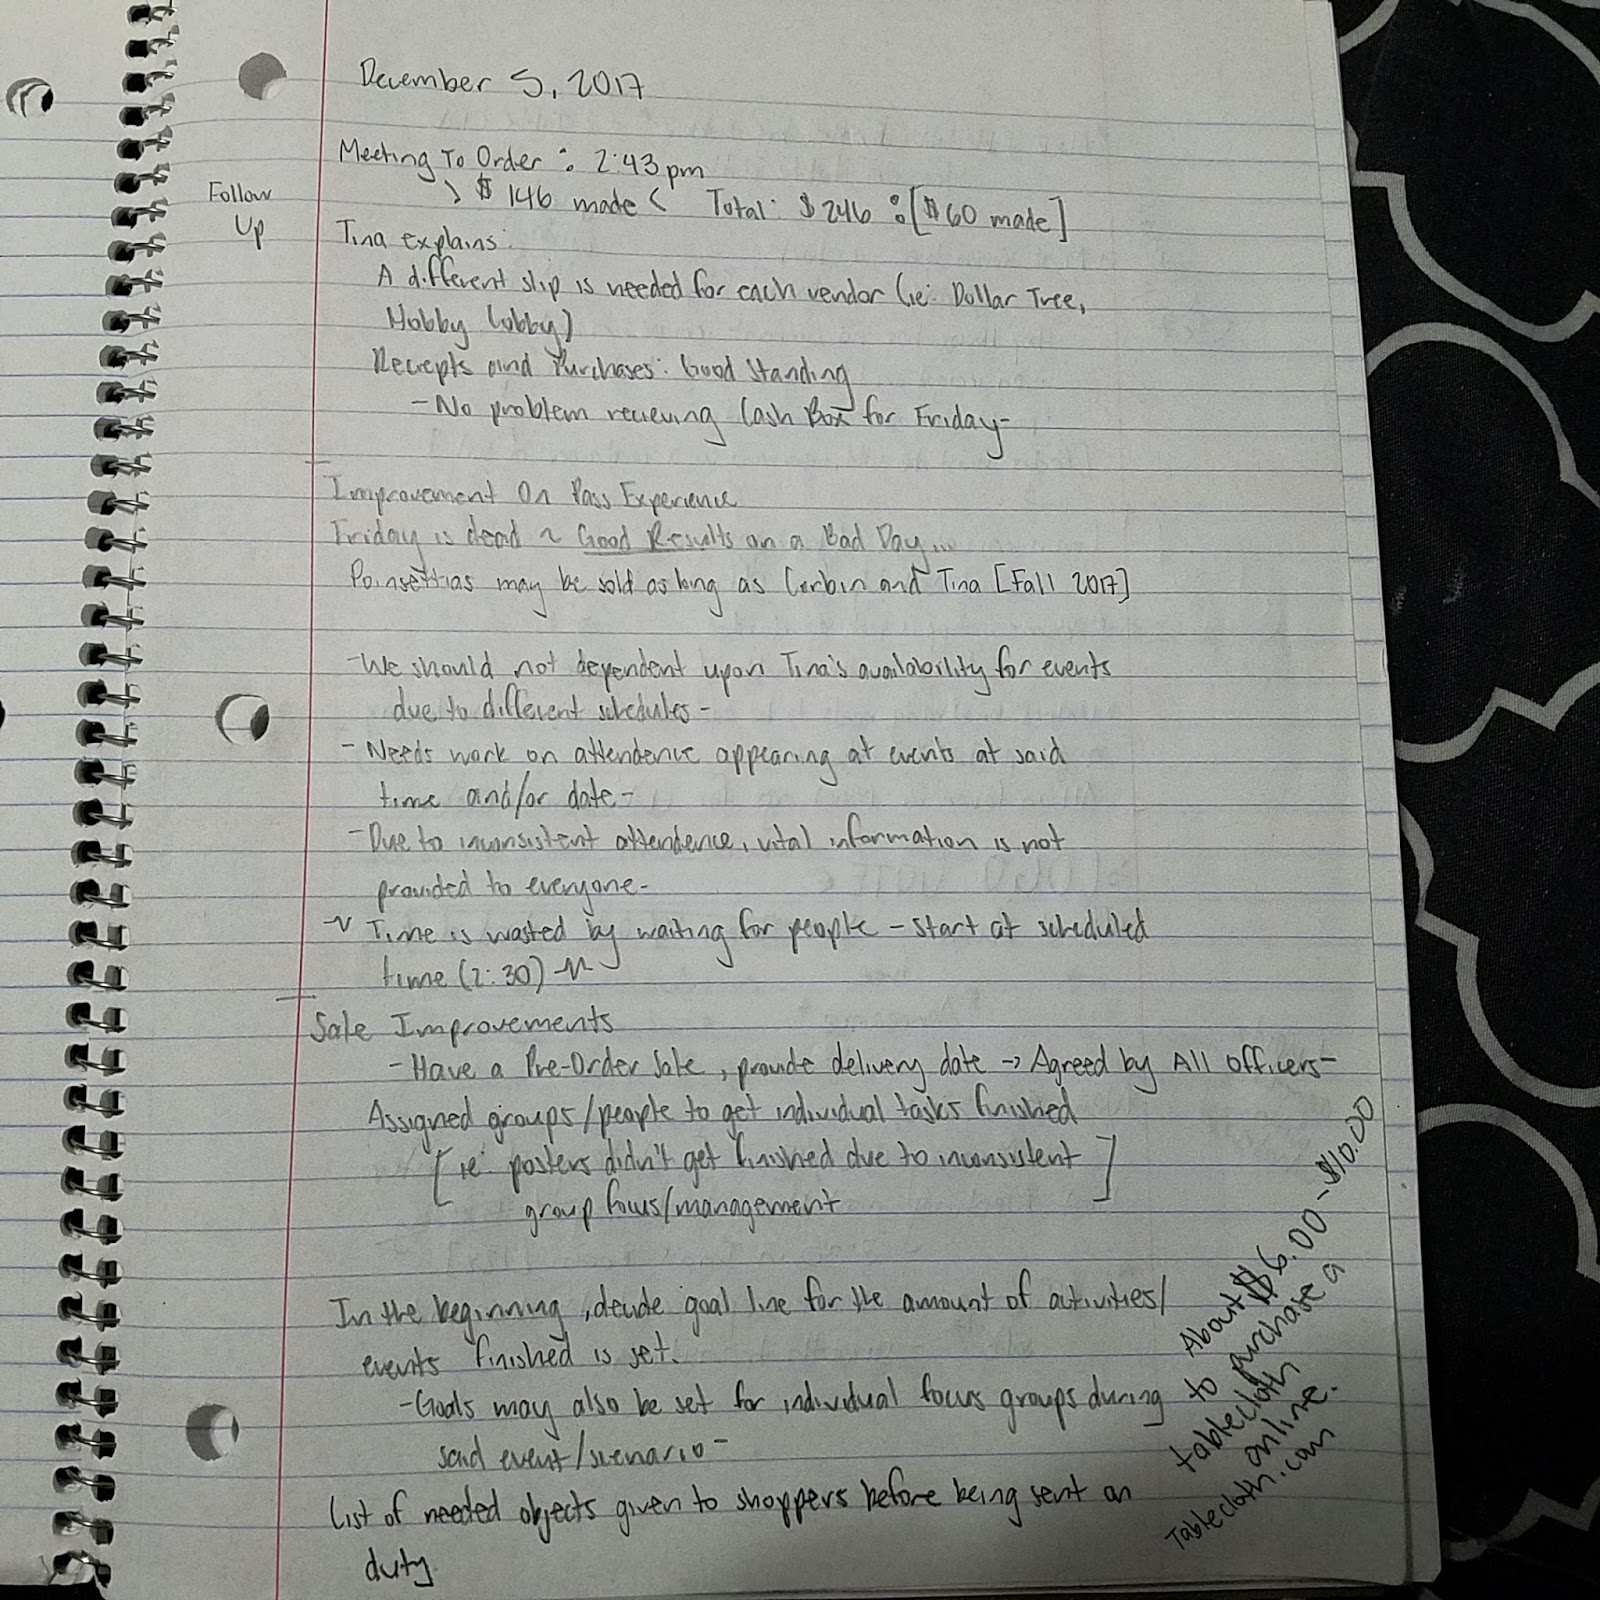 December 5, 2017
Meeting To Order : 2:43 pm
> $ 146 made < Total: $246 : [$60 made]
Follow
Up
Tina explains:
A different slip is needed for each vendor (ie: Dollar Tree,
Hobby Lobby)
Reciepts and Purchases: Good Standing
- No problem recieving Cash Box for Friday-
Improvement On Pass Experience
Friday is dead ~ Good Results on a Bad Day...
Poinsettias may be sold as long as Corbin and Tina [Fall 2017]
- We should not dependent upon Tina's availability for events
due to different schedules -
- Needs work on attendence appearing at events at said
time and/or date -
- Due to inconsistent attendence, vital information is not
provided to everyone -
~ Time is wasted by waiting for people - start at scheduled
time (2:30) ~
Sale Improvements
- Have a Pre-Order Sale, provide delivery date → Agreed by All Officers -
Assigned groups/people to get individual tasks finished
[ie: posters didn't get finished due to inconsistent]
group focus/management
In the beginning, decide goal line for the amount of activities/
events finished is set.
- Goals may also be set for individual focus groups during
said event/scenario -
List of needed objects given to shoppers before being sent on
duty
About $6.00 - $10.00
to purchase a
tablecloth
online.
Tablecloth.com